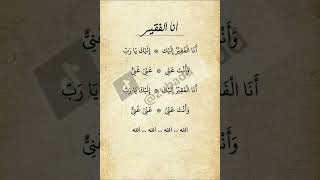 انا الفقير
أَنَا الْفَقِيْرُ إِلَيْكَ * إِلَيْكَ يَا رَبّ
وَأَنْتَ غَنِي * غَنِيْ غَنِيٌّ
أَنَا الْفَقِيْرُ إِلَيْكَ * إِلَيْكَ يَا رَبّ
وَأَنْتَ غَنِي * غَنِيْ غَنِيٌّ
الله .. الله .. الله .. الله